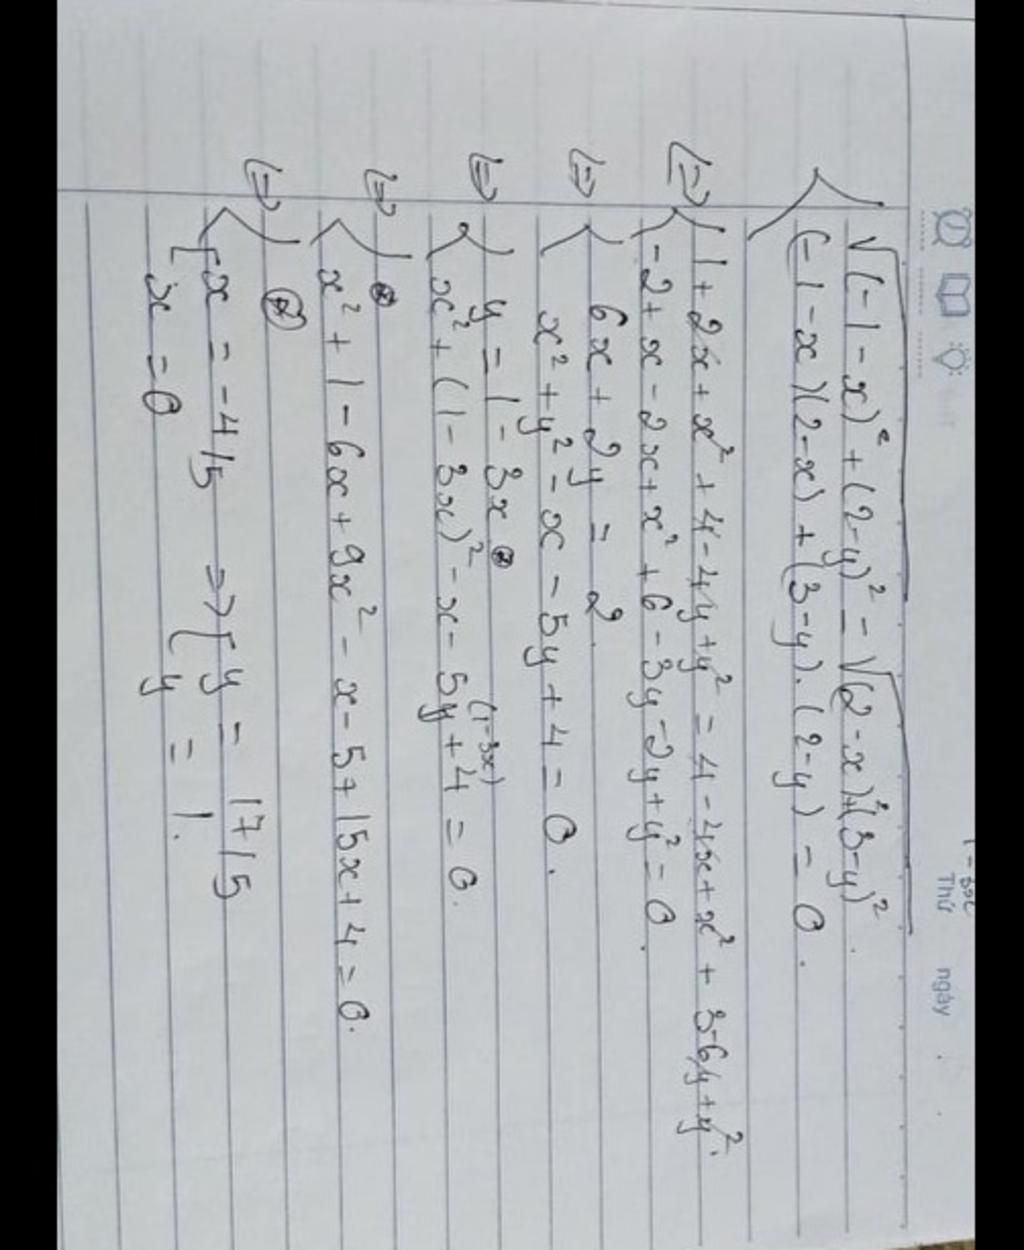 1-3x
Thứ ngày
{ √((-1-x)² + (2-y)²) = √((2-x)²+(3-y)²).
(-1-x)(2-x) + (3-y).(2-y) = 0.
⇔ { 1+2x+x²+4-4y+y² = 4-4x+x²+3-6y+y².
-2+x-2x+x²+6-3y-2y+y² = 0.
⇔ { 6x + 2y = 2
x²+y²-x-5y+4=0.
⇔ { y = 1-3x (*)
(1-3x)
x²+(1-3x)²-x-5y+4=0.
⇔ { (*)
x²+1-6x+9x²-x-5+15x+4=0.
⇔ { (*)
[ x = -4/5 ⇒ [ y = 17/5
x = 0 y = 1.